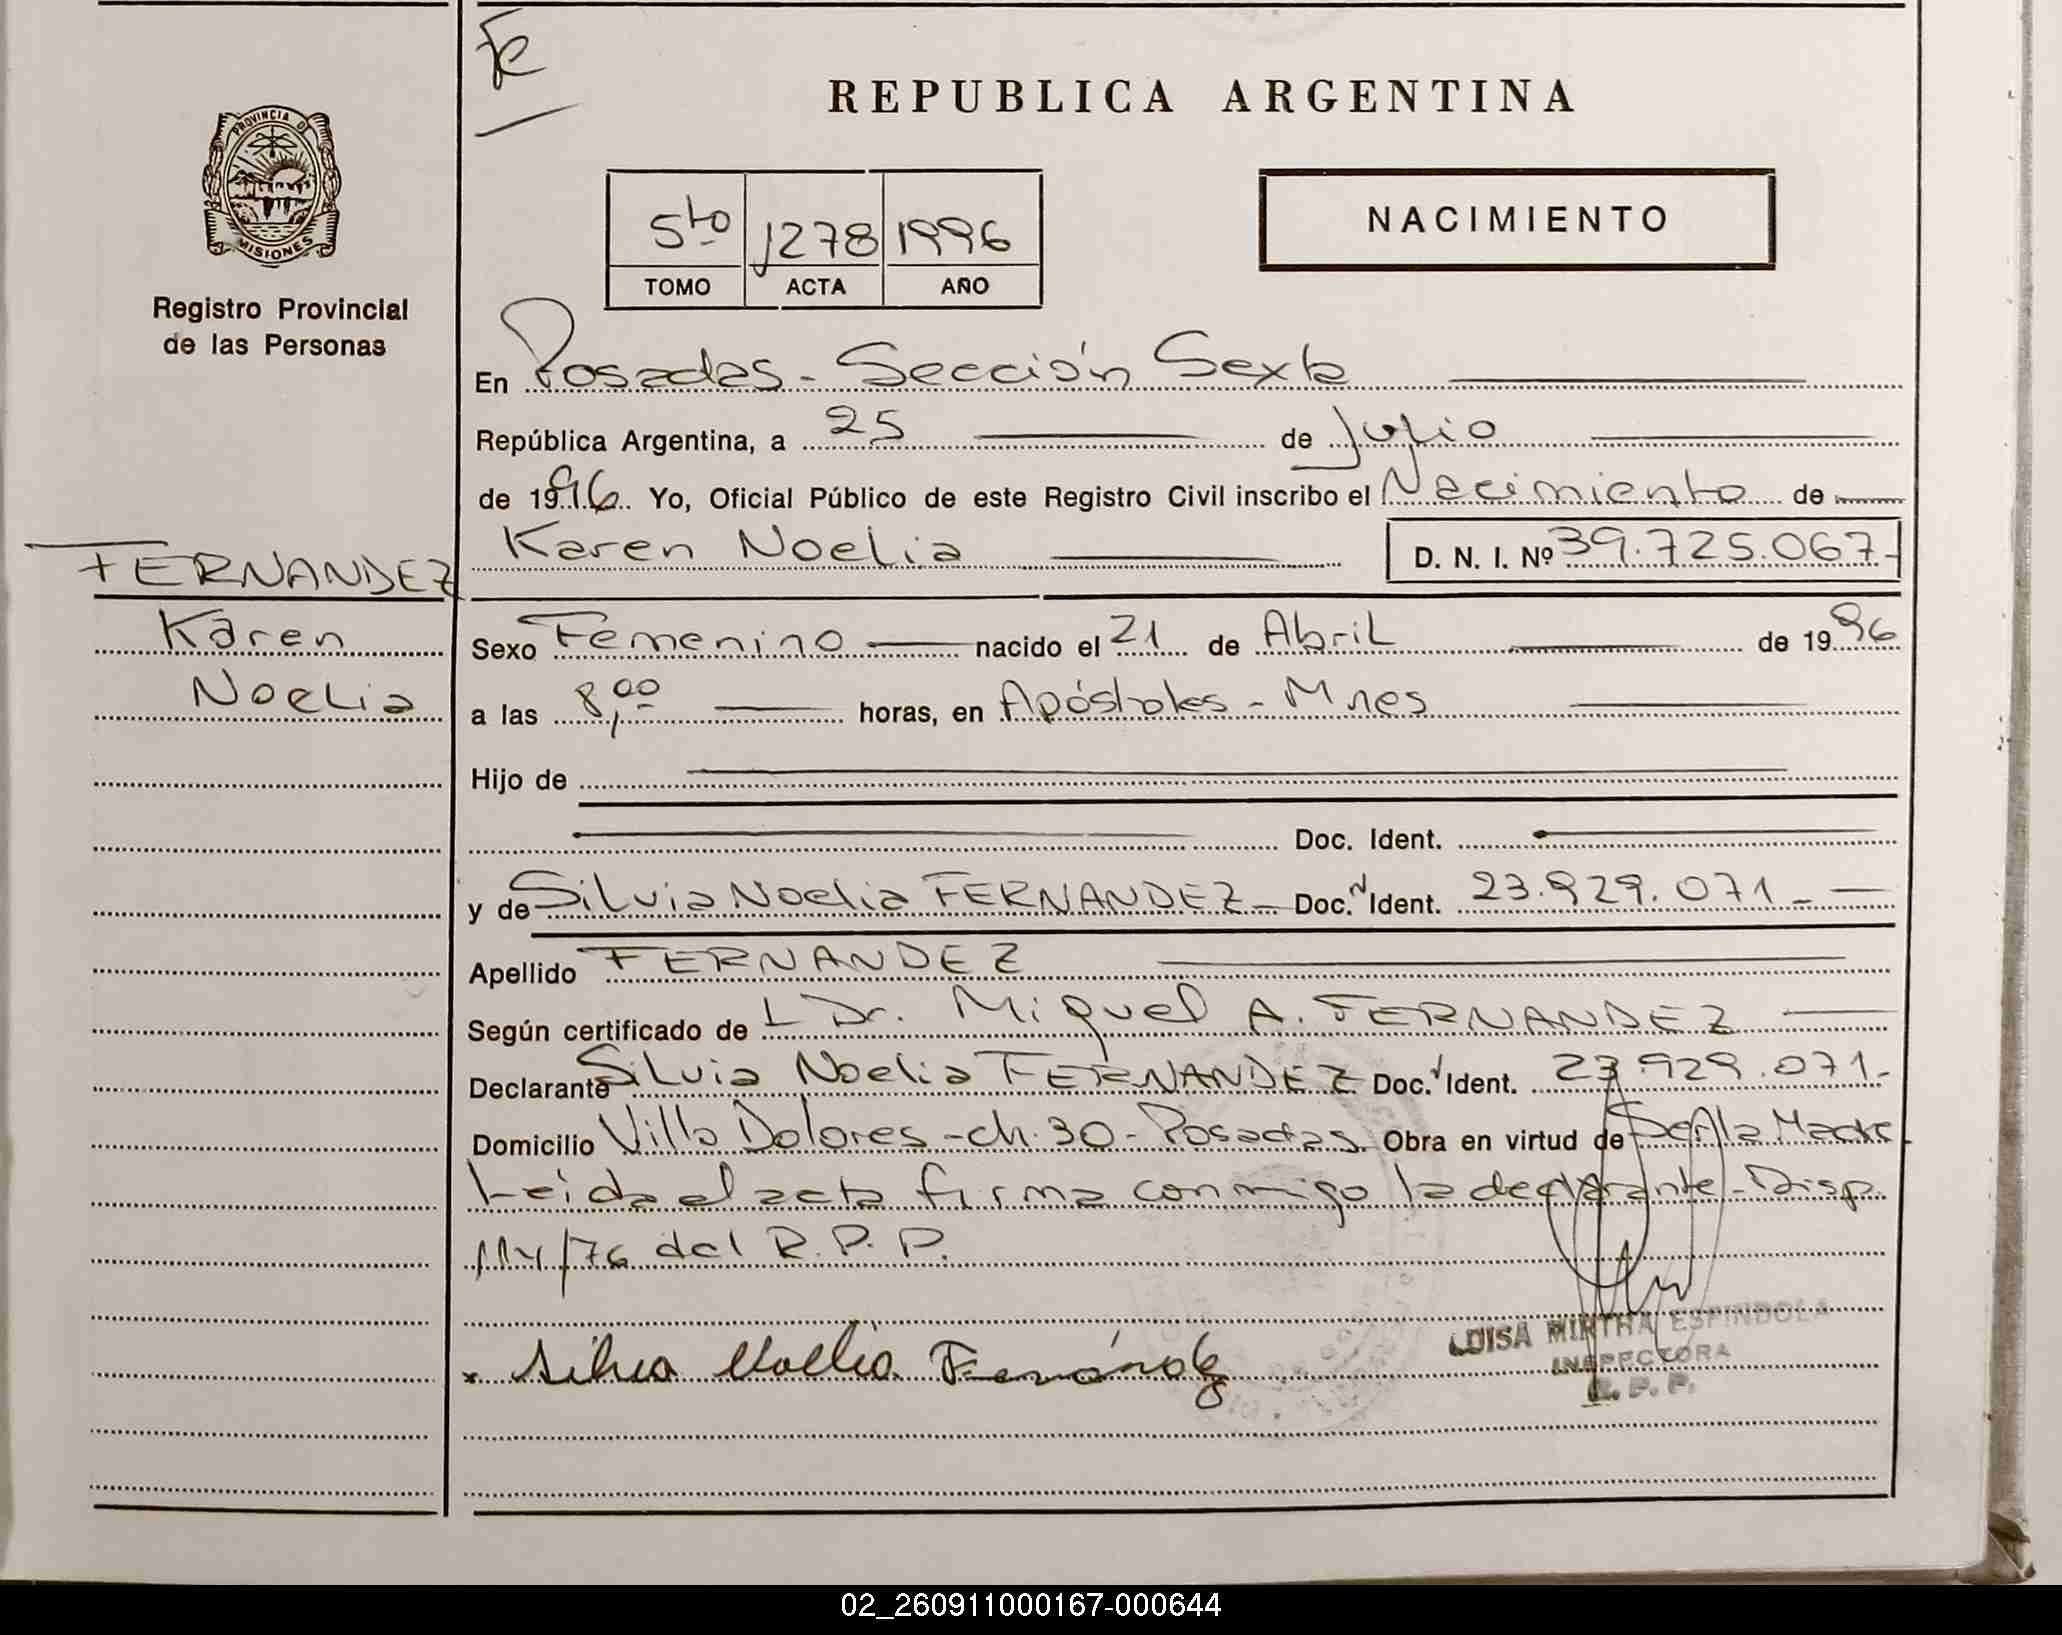 Fe
REPUBLICA ARGENTINA
PROVINCIA DE
MISIONES
Registro Provincial
de las Personas
5to 1278 1996
TOMO ACTA AÑO
NACIMIENTO
En Posadas - Sección Sexta
República Argentina, a 25 de Julio
de 1996. Yo, Oficial Público de este Registro Civil inscribo el Nacimiento de
Karen Noelia D. N. I. Nº 39.725.067-
FERNANDEZ
Karen
Noelia
Sexo Femenino nacido el 21 de Abril de 1996
a las 8,00 horas, en Apóstoles - Mnes
Hijo de
Doc. Ident.
y de Silvia Noelia FERNANDEZ - Doc. Ident. 23.929.071 -
Apellido FERNANDEZ
Según certificado de L Dr. Miguel A. FERNANDEZ
Declarante Silvia Noelia FERNANDEZ Doc. Ident. 23.929.071-
Domicilio Villa Dolores - ch. 30 - Posadas. Obra en virtud de Ser la Madre
Leida el acta firma conmigo la declarante - Disp.
114/76 del R.P.P.
Silvia Noelia Fernández
LUISA MIRTHA ESPINDOLA
INSPECTORA
R. P. P.
02_260911000167-000644